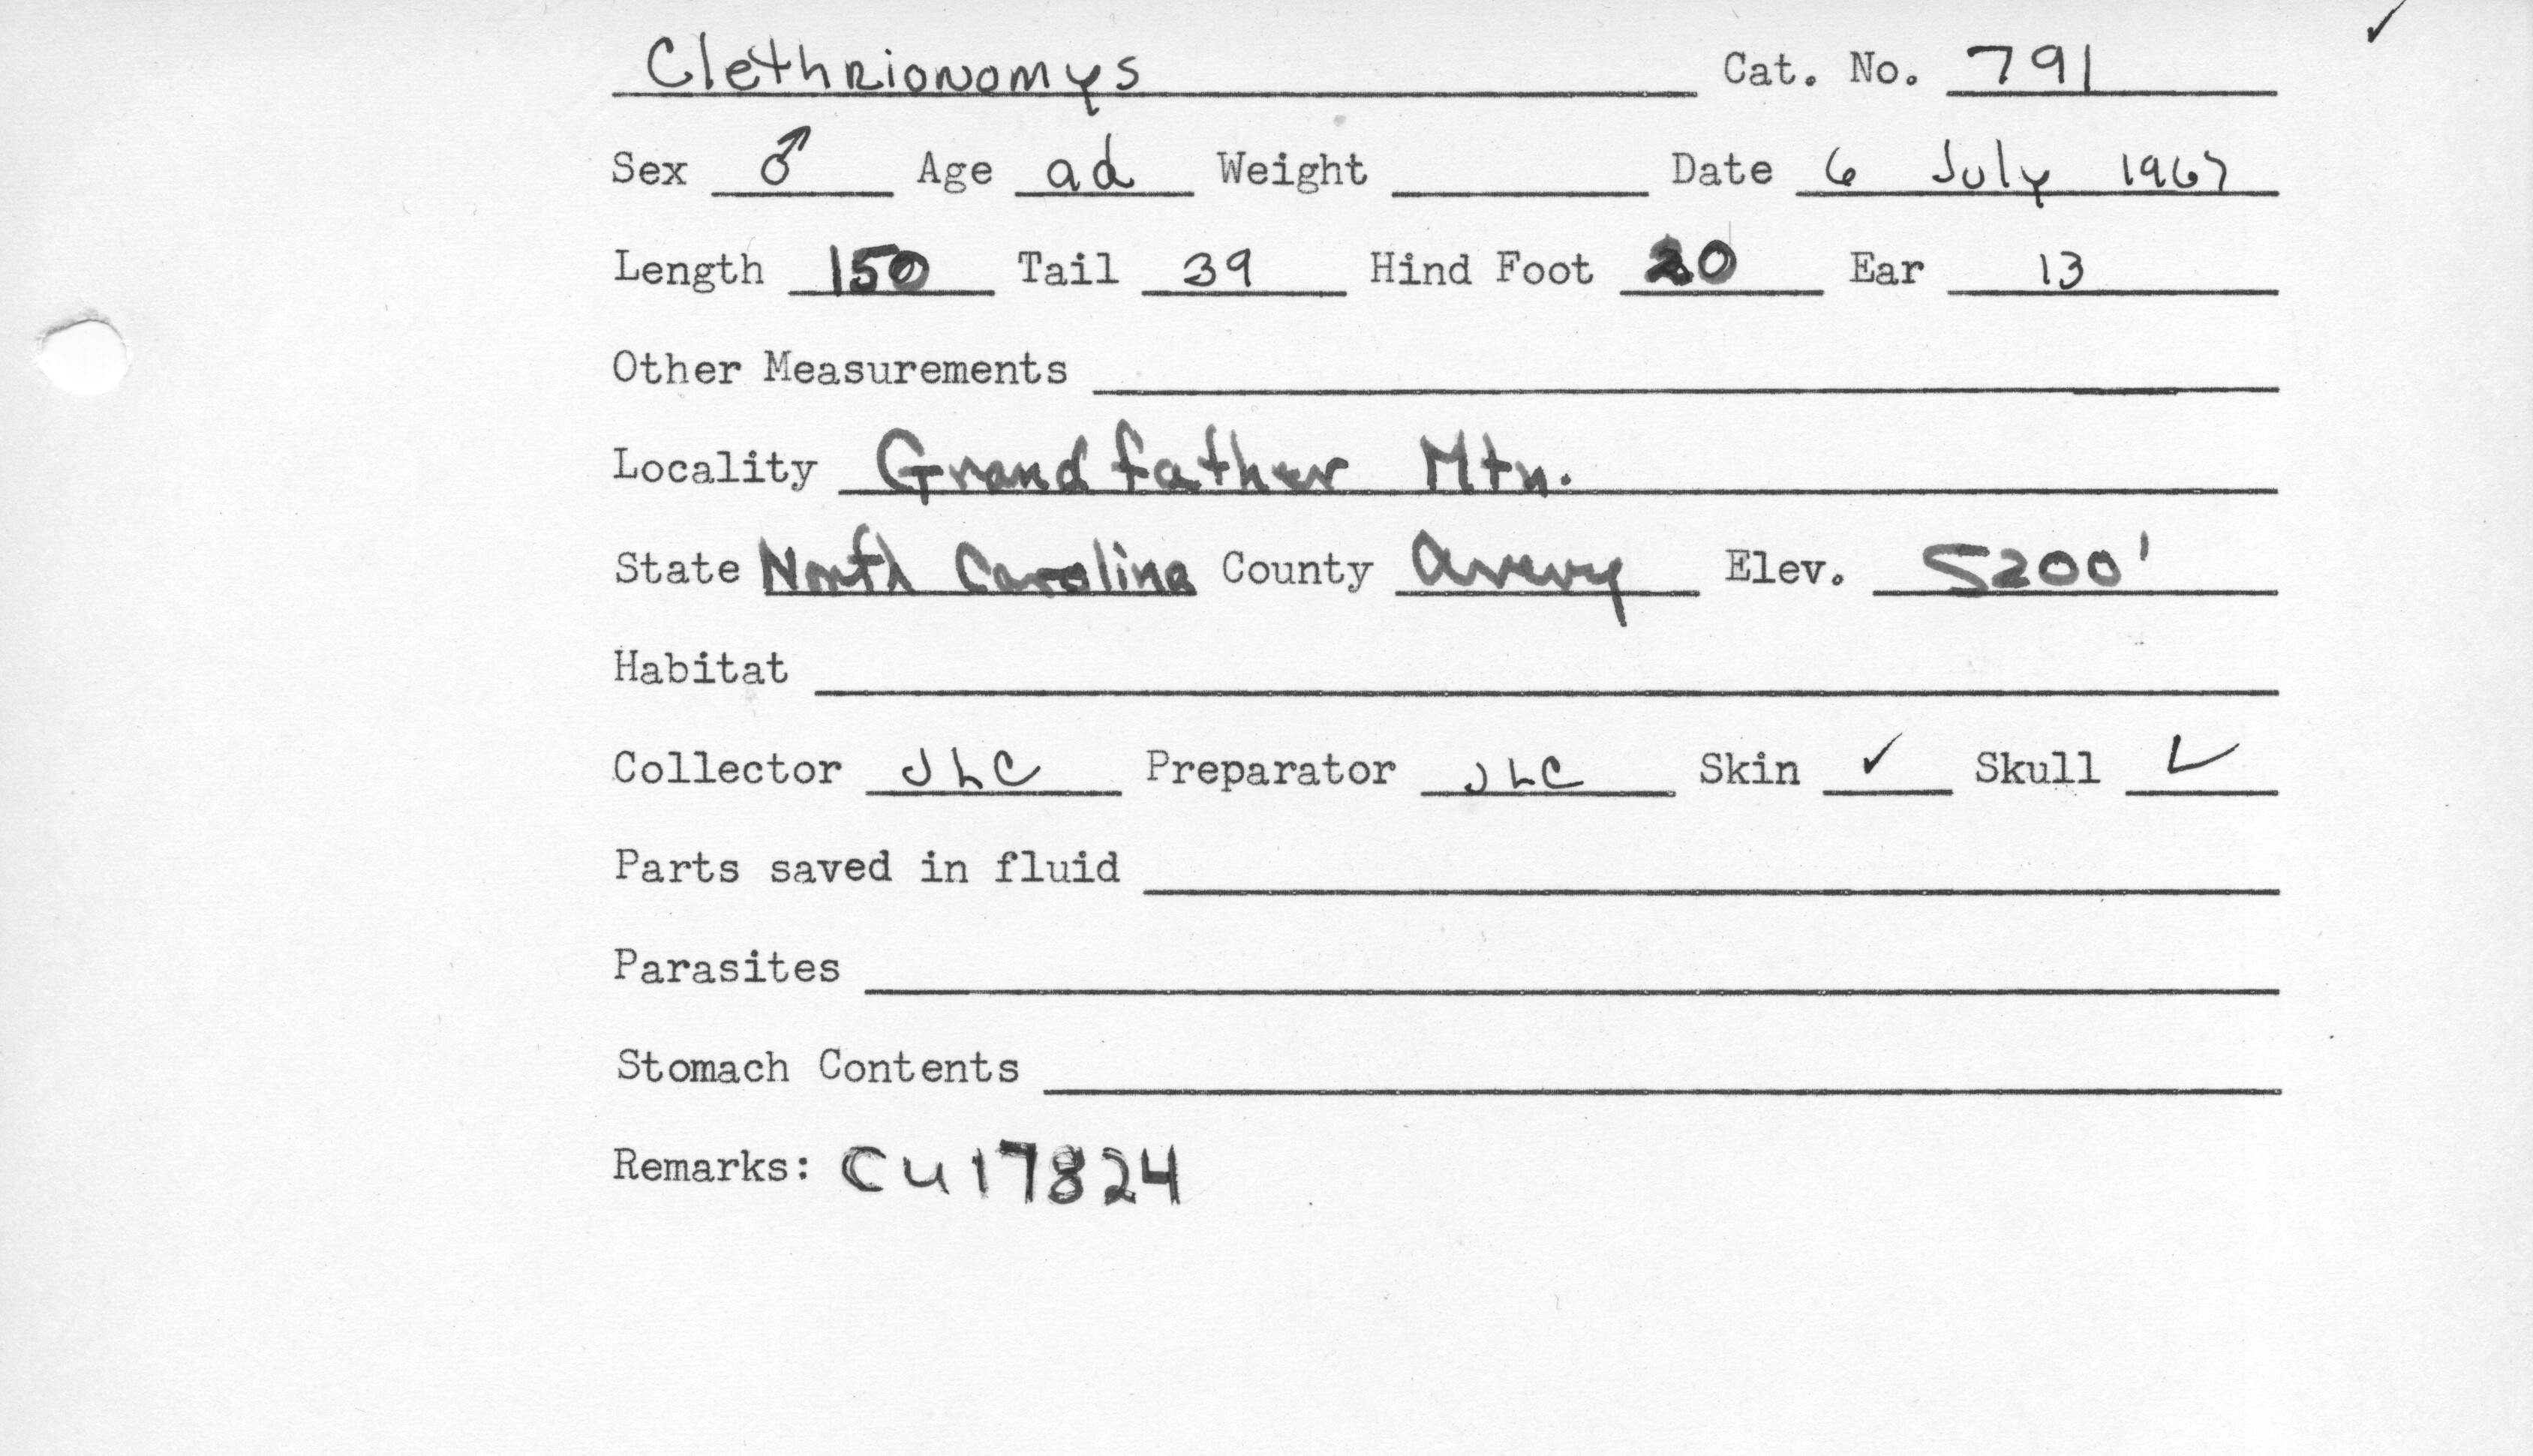 Clethrionomys Cat. No. 791
Sex ♂ Age ad Weight Date 6 July 1967
Length 150 Tail 39 Hind Foot 20 Ear 13
Other Measurements
Locality Grandfather Mtn.
State North Carolina County Avery Elev. 5200'
Habitat
Collector JLC Preparator JLC Skin ✓ Skull ✓
Parts saved in fluid
Parasites
Stomach Contents
Remarks: CU17824